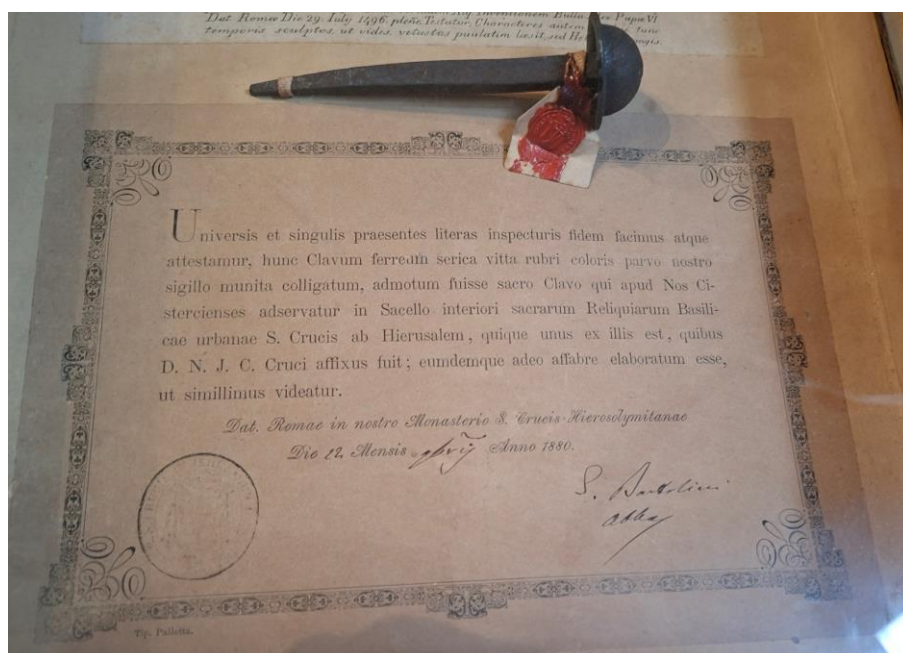 Dat. Romae Die 29. July 1496. plene Testatur, Characteres autem tunc
temporis sculptos, ut vides, vetustas paulatim laesit, sed
Universis et singulis praesentes literas inspecturis fidem facimus atque
attestamur, hunc Clavum ferreum serica vitta rubri coloris parvo nostro
sigillo munita colligatum, admotum fuisse sacro Clavo qui apud Nos Ci-
stercienses adservatur in Sacello interiori sacrarum Reliquiarum Basili-
cae urbanae S. Crucis ab Hierusalem, quique unus ex illis est, quibus
D. N. J. C. Cruci affixus fuit; eumdemque adeo affabre elaboratum esse,
ut simillimus videatur.
Dat. Romae in nostro Monasterio S. Crucis Hierosolymitanae
Die 22. Mensis Anno 1880.
S. Bartolini
abbas
Tip. Pallotta.